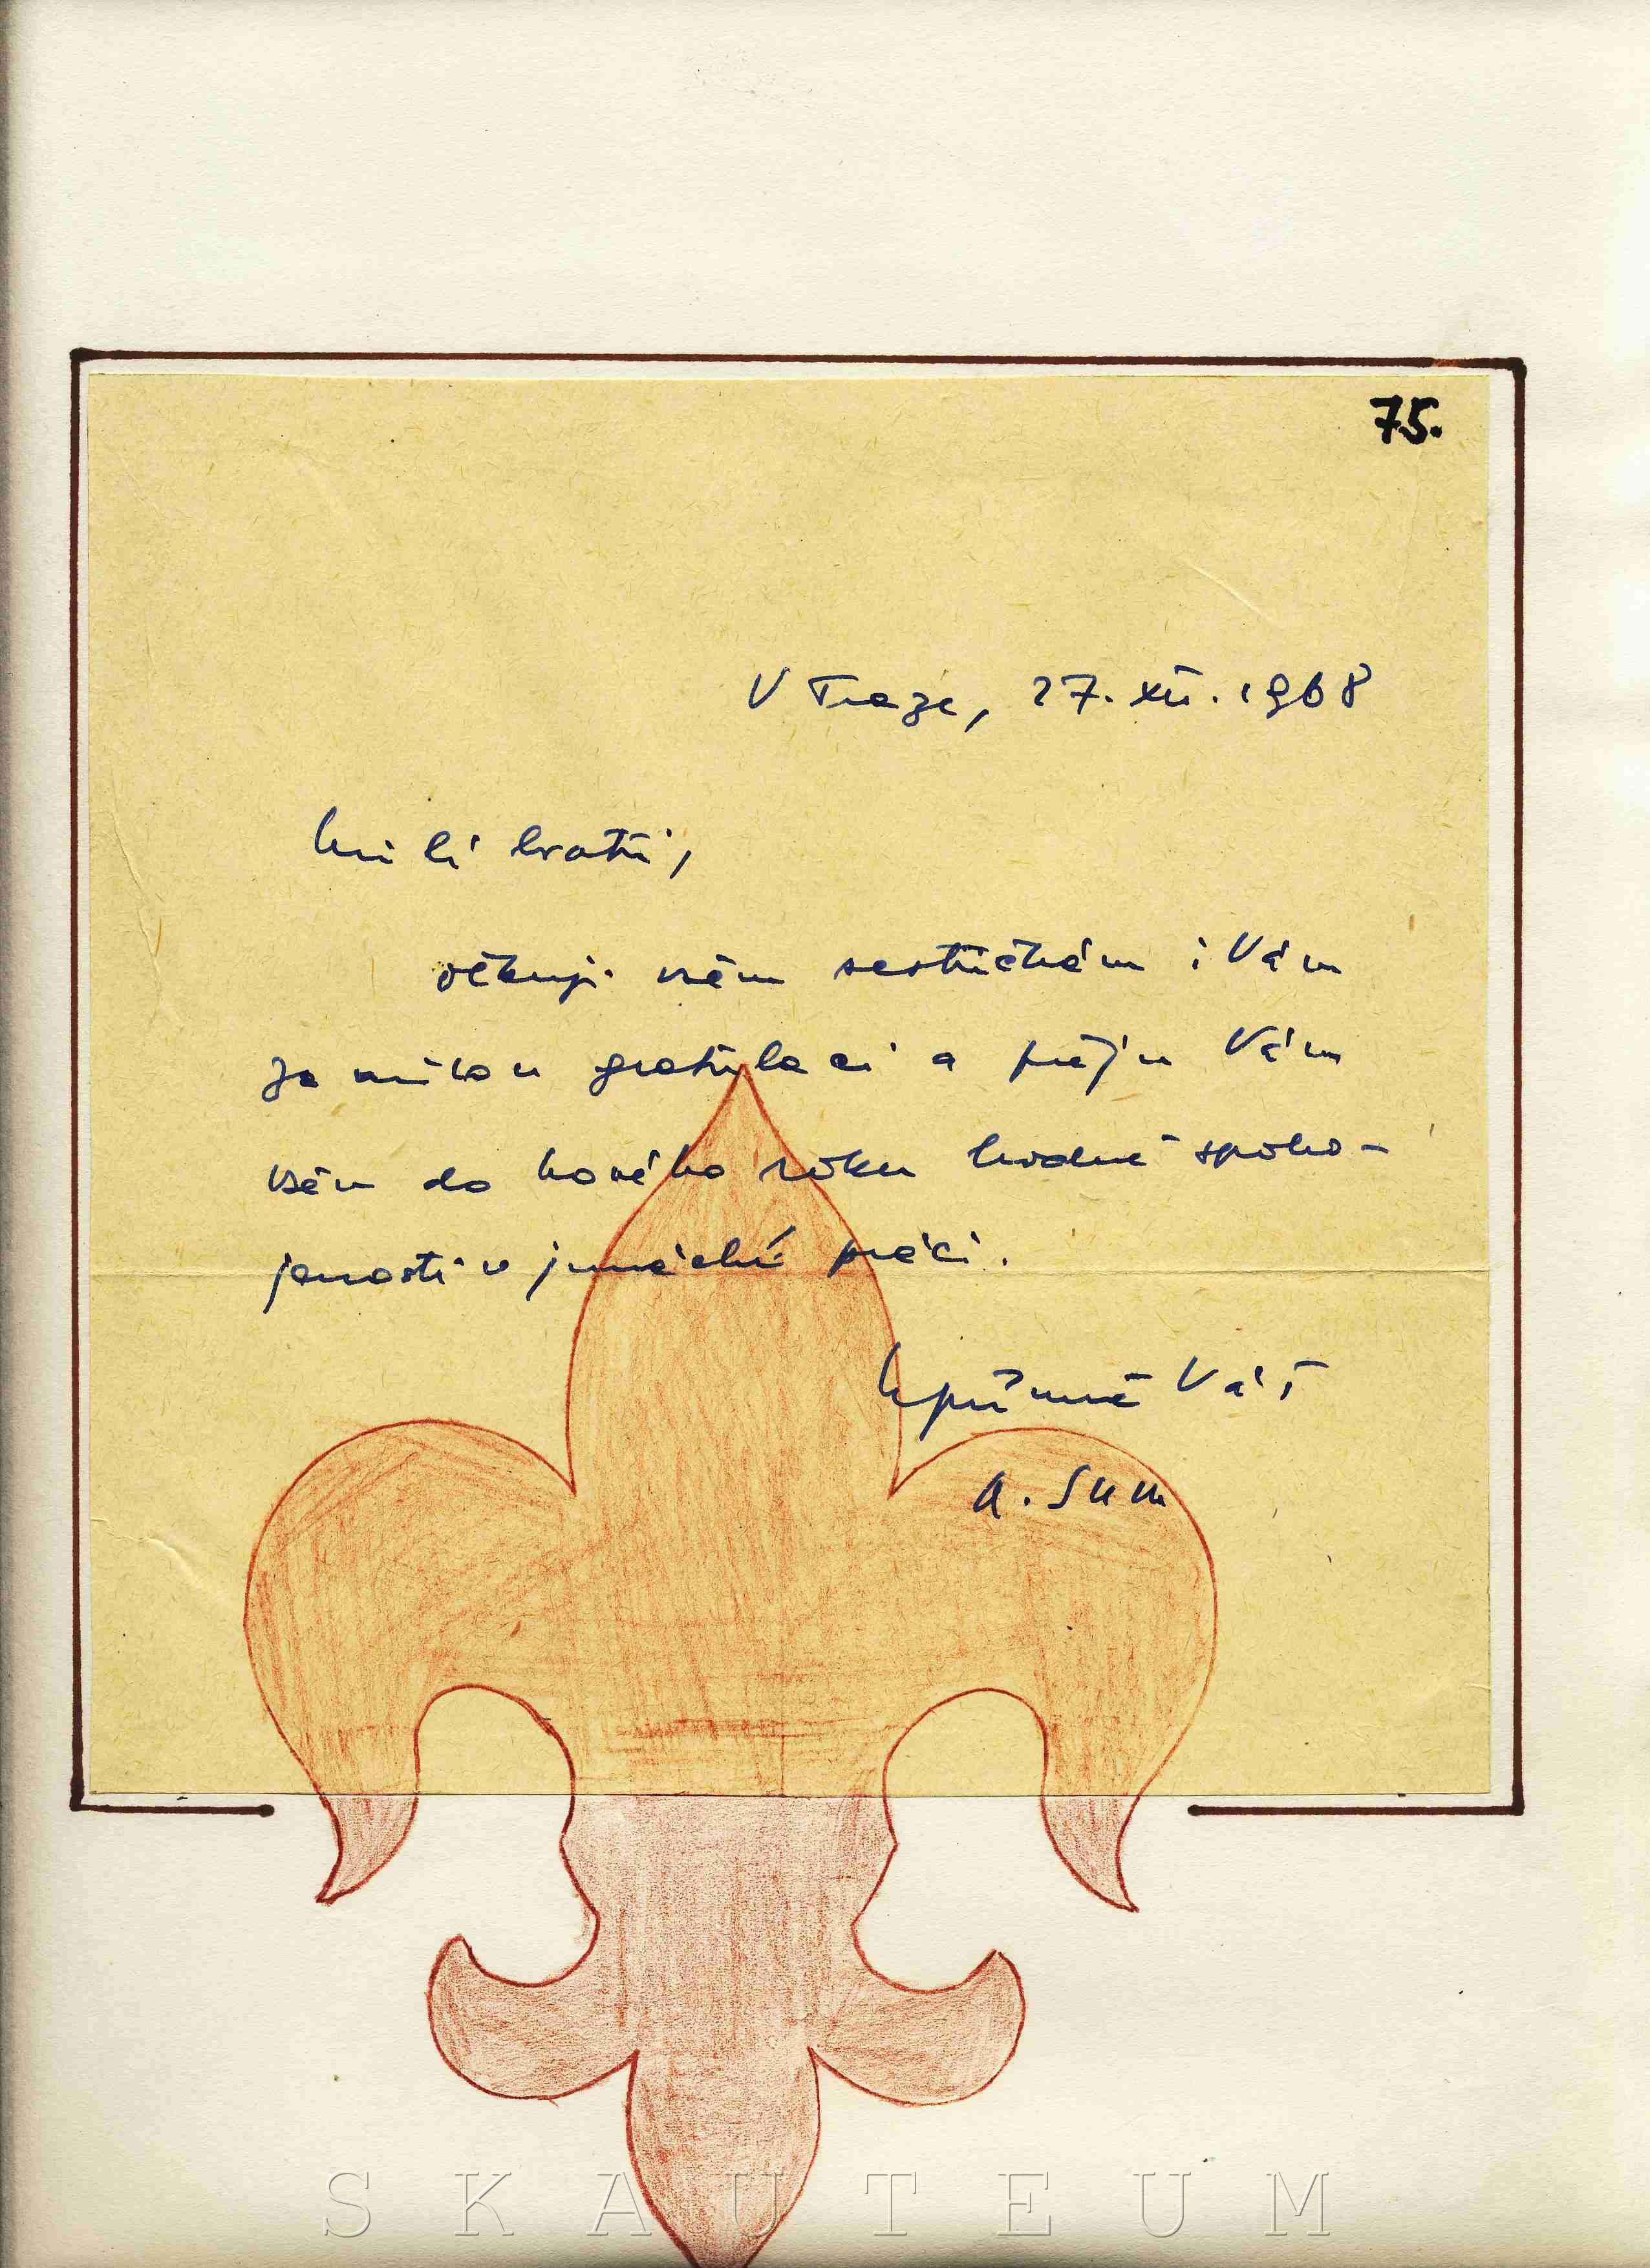 75.
V Praze, 27. XII. 1968
Milí bratři,
děkuji všem sestřičkám i Vám
za milou gratulaci a přeju Vám
všem do nového roku hodně spoko-
jenosti v junácké práci.
Upřímně Váš
A. Sum
SKAUTEUM